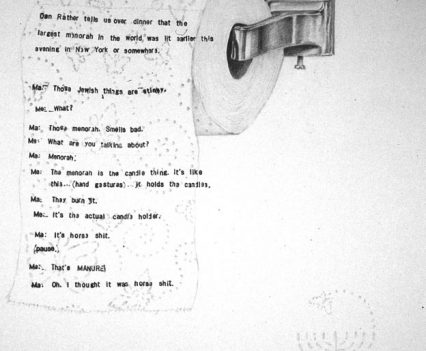 Dan Rather tells us over dinner that the
largest menorah in the world, was lit earlier this
evening in New York or somewhere.
Ma: Those Jewish things are stinky.
Me: What?
Ma: Those menorah. Smells bad.
Me: What are you talking about?
Ma: Menorah.
Me: The menorah is the candle thing. It's like
this...(hand gestures)...it holds the candles.
Ma: They burn it.
Me: It's the actual candle holder.
Ma: It's horse shit.
(pause.)
Me: That's MANURE!
Ma: Oh. I thought it was horse shit.